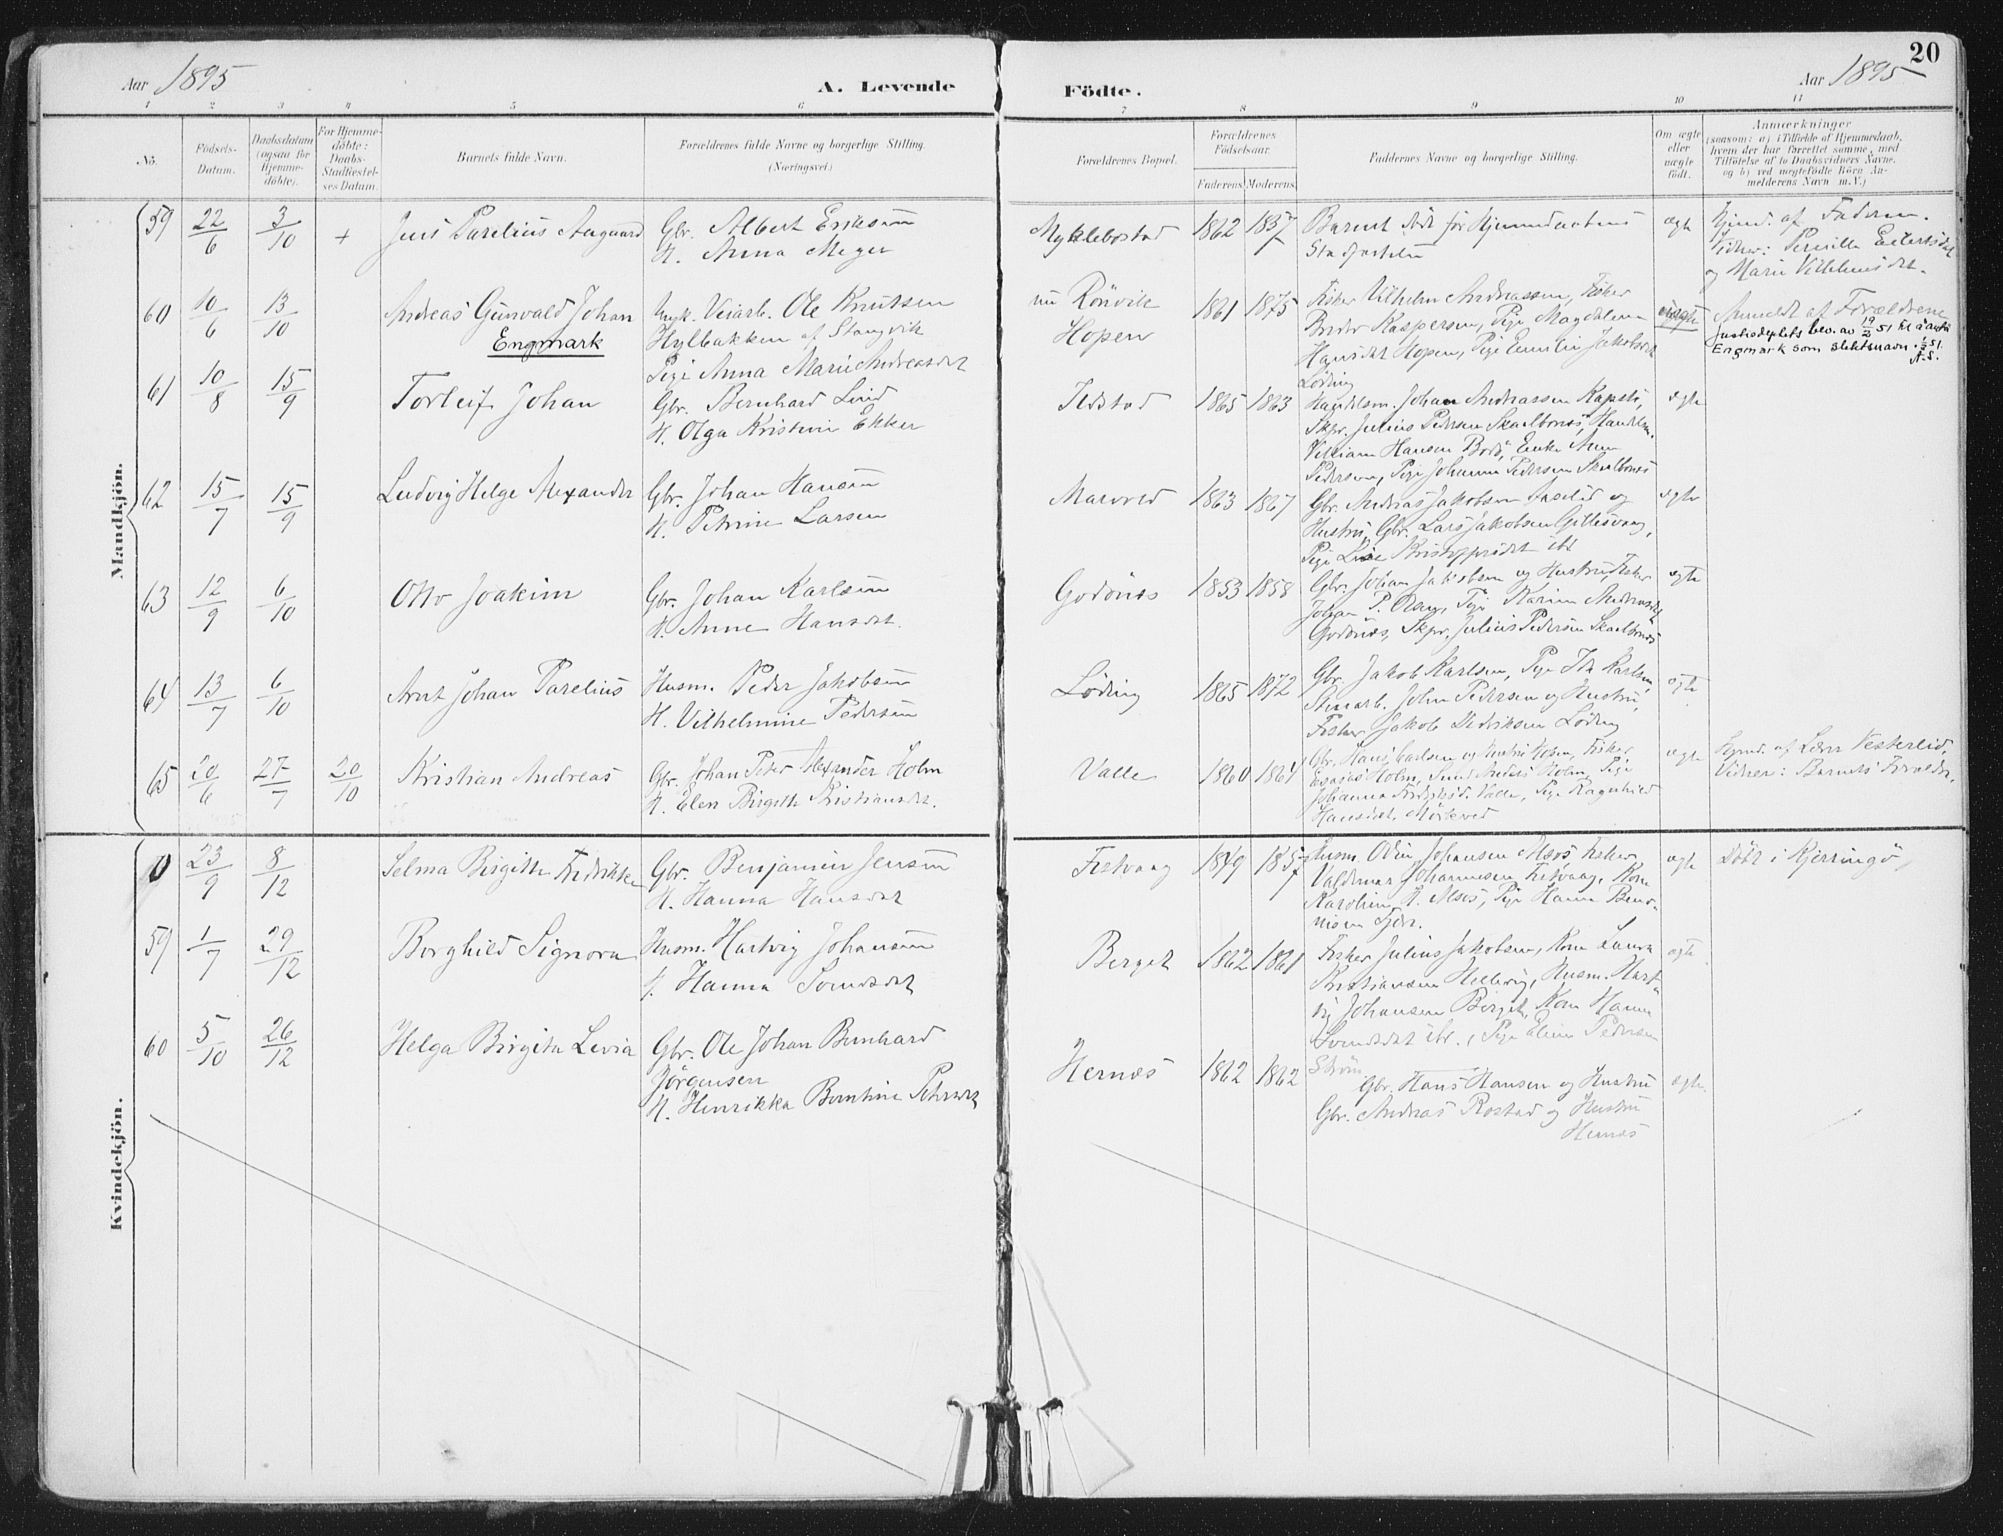 20
Aar 1895
A. Levende
Födte.
Aar 1895
1 2 3 4 5 6 7 8 9 10 11
No.
Födsels-Datum.
Daabsdatum (ogsaa for Hjemme-döbte).
For Hjemme-döbte: Daabs-Stadfæstel-ses Datum.
Barnets fulde Navn.
Forældrenes fulde Navne og borgerlige Stilling. (Næringsvei.)
Forældrenes Bopæl.
Forældrenes Födselsaar.
Faderens. Moderens.
Faddernes Navne og borgerlige Stilling.
Om ægte eller uægte födt.
Anmærkninger
(saasom: a) i Tilfælde af Hjemmedaab, hvem der har forrettet samme, med Tilföielse af to Daabsvidners Navne, og b) ved uegtefödte Börn An-melderens Navn m. V.)
Mandkjön.
59 22/6 3/10 + Jens Parelius Aargaard
Gbr. Albert Eriksen
H. Anna Meyer
Myklebostad 1862 1857
Barnet död för Hjemmedaabens
Stadfæstelse
ægte
Hjmd. af Faderen.
Vidner: Pernille Eilertsdat
og Marie Vilhelmsdat.
60 10/6 13/10 Andreas Gunvald Johan
Engmark
Ungk. Veiarb. Ole Knutsen
Hylbakken af Stangvik
Pige Anna Marie Andreasdat
nu Rönvik
Hopen
1861 1875
Fisker Vilhelm Andreassen, Fisker
Peder Kaspersen, Pige Magdalena
Hansdat Hopen, Pige Emilie Jakobsdat
Löding
uægte
Anmeldt af Forældrene
Justisdeplets bev. av 19/2 51 til å anta
Engmark som slektsnavn. 1/3 51.
A.S.
61 10/8 15/9 Torleif Johan
Gbr. Bernhard Lind
H. Olga Kristine Ekker
Ildstad 1865 1863
Handelsm. Johan Andreassen Kapstö,
Skpr. Julius Pedersen Skaelbones, Handelsm.
Villiam Hansen Bodö, Enke Anna
Pedersen, Pige Johanna Pedersen Skaelbones
ægte
62 15/7 15/9 Ludvig Helge Alexander
Gbr. Johan Hansen
H. Petrine Larsen
Marvold 1863 1867
Gbr. Andreas Jakobsen Aaselid og
Hustru, Gbr. Lars Jakobsen Gillesvaag,
Pige Lise Kristoffersdat ibd
ægte
63 12/9 6/10 Otto Joakim
Gbr. Johan Karlsen
H. Anne Hansdat.
Godönes 1853 1858
Gbr. Johan Jakobsen og Hustru, Fisker
Johan P. Olsen, Pige Karine Andreasdat
Godönes, Skpr. Julius Pedersen Skaelbones
ægte
64 13/7 6/10 Arnt Johan Parelius
Husm. Peder Jakobsen
H. Vilhelmine Pedersen
Löding 1865 1872
Gbr. Jakob Karlsen, Pige Ida Karlsen,
Stenarb. John Pedersen og Hustru,
Fisker Jakob Didriksen Löding
ægte
65 20/6 27/7 20/10 Kristian Andreas
Gbr. Johan Peter Alexander Holm
H. Elen Birgitte Kristiansdat.
Valle 1860 1864
Gbr. Hans Carlsen og Hustru Hopen, Fisker
Esaias Holm, Smed Anders Holm, Pige
Johanna Fredriksd. Valle, Pige Ragnhild
Hansdat. Mörkved
ægte
Hjmd. af Lærer Vesterlid.
Vidner: Barnets Forældre.
Kvindekjön.
23/9 8/12 Selma Birgitte Fredrikke
Gbr. Benjamin Jensen
H. Hanna Hansdat
Festvaag 1849 1857
Husm. Odin Johansen Alsos, Fisker
Valdemar Johannesen Festvaag, Kone
Karoline P. Alsos, Pige Hanna Beno-
nisen Fjær.
ægte
Döbt i Kjerringö
59 1/7 29/12 Borghild Signora
Husm. Hartvig Johansen
H. Hanna Svendsdat
Berget 1862 1861
Fisker Julius Jakobsen, Kone Laura
Kristiansen Hellevig, Husm. Hart-
vig Johansen Berget, Kone Hanna
Svendsdat ibr., Pige Eline Pedersen
Ström
ægte
60 5/10 26/12 Helga Birgitta Levia
Gbr. Ole Johan Bernhard
Jörgensen
H. Henrikka Berntine Petersdat
Hernæs 1862 1862
Gbr. Hans Hansen og Hustru
Gbr. Andreas Rostad og Hustru
Hernæs
ægte